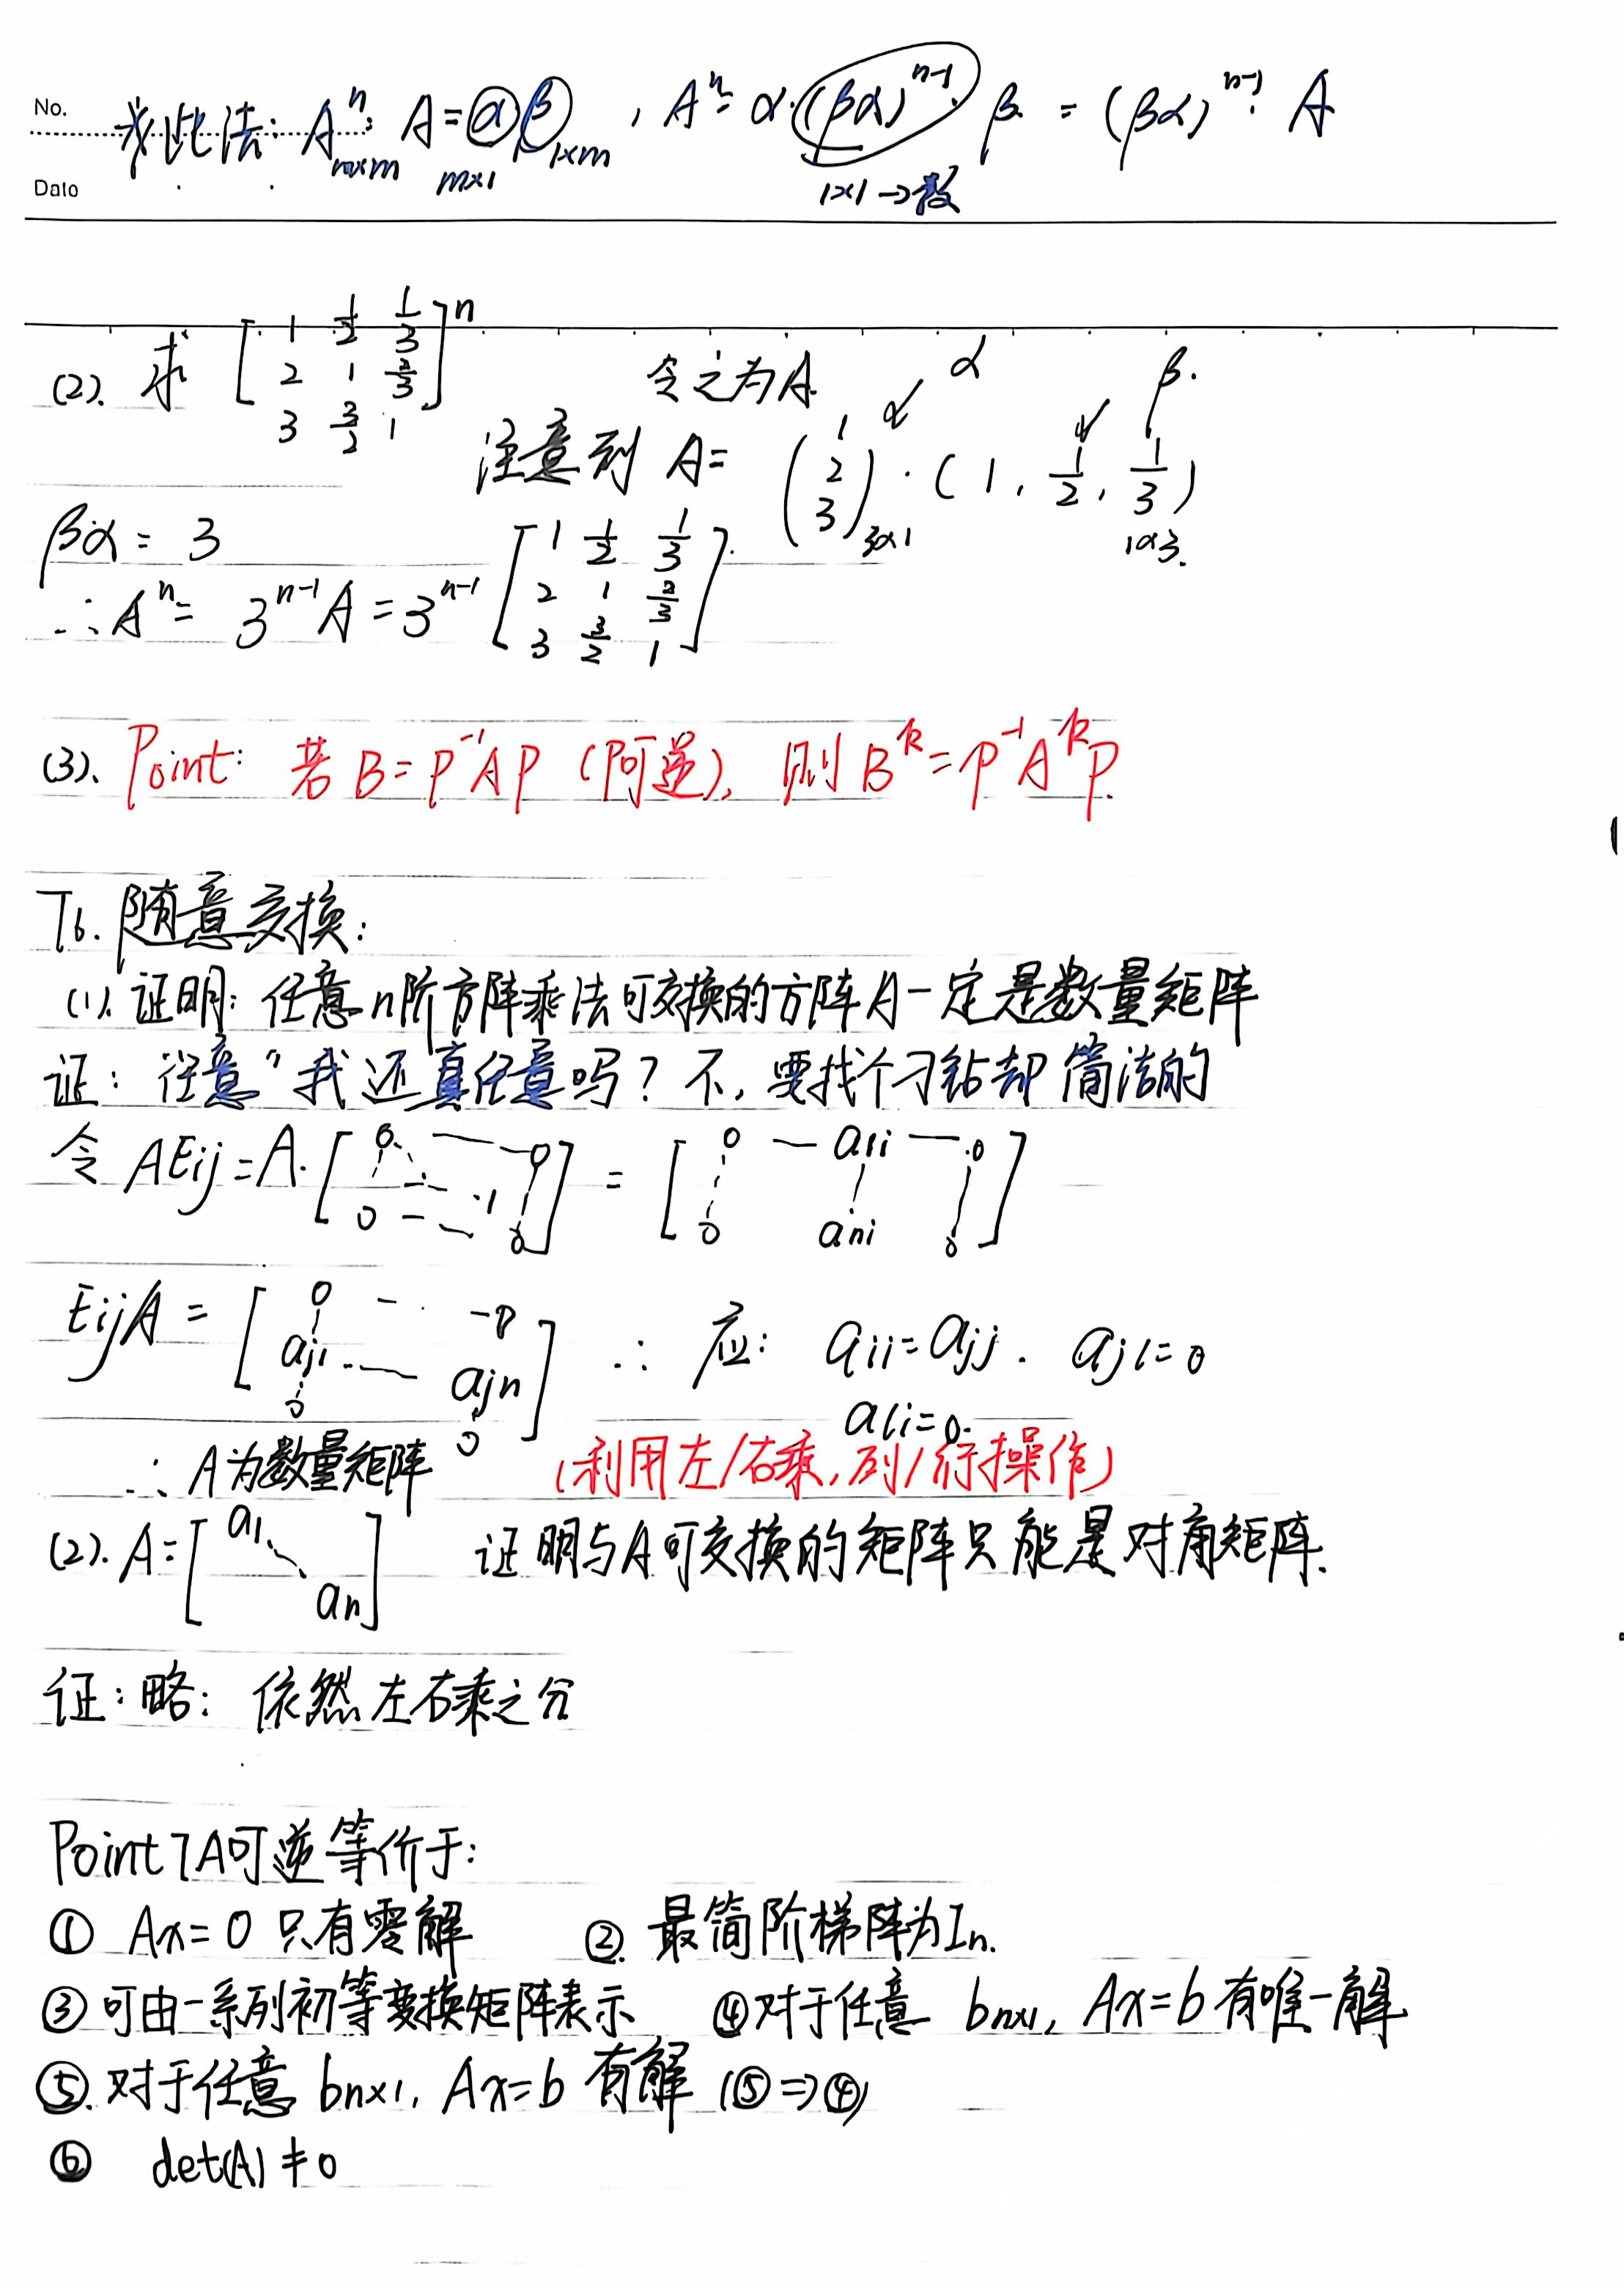 No.
Date
求此法: Aⁿ_{m×m}: A=α_{m×1}β_{1×m}, Aⁿ=α·(βα)^{n-1}·β = (βα)^{n-1}·A
1×1→数
(2). 求 [1 1/2 1/3; 2 1 2/3; 3 3/2 1]ⁿ 令之为A.
α β.
注意到 A= (1 2 3)_{3×1} · (1, 1/2, 1/3)_{1×3}.
βα = 3
∴Aⁿ= 3^{n-1}A = 3^{n-1} [1 1/2 1/3; 2 1 2/3; 3 3/2 1].
(3). Point: 若 B=P⁻¹AP (P可逆), 则 Bᵏ=P⁻¹AᵏP.
T6. 随意交换:
(1). 证明: 任意n阶方阵乘法可交换的方阵A一定是数量矩阵
证: 任意"我还真任意吗? 不, 要找个刁钻却简洁的
令 AEij=A·[0 0; 1; 0 0] = [0 — a1i — 0; 0 ani 0]
EijA = [0 - - 0; aj1 — ajn; 0 0] ∴ 应: aii=ajj. ajl=0
ali=0.
∴ A为数量矩阵 (利用左/右乘, 列/行操作)
(2). A=[a1 ⋱ an] 证明与A可交换的矩阵只能是对角矩阵.
证: 略: 依然左右乘之分
Point 7 A可逆等价于:
① Ax=0 只有零解 ②. 最简阶梯阵为In.
③ 可由一系列初等变换矩阵表示 ④对于任意 b_{n×1}, Ax=b 有唯一解
⑤. 对于任意 b_{n×1}, Ax=b 有解 (⑤⇒④)
⑥ det(A)≠0